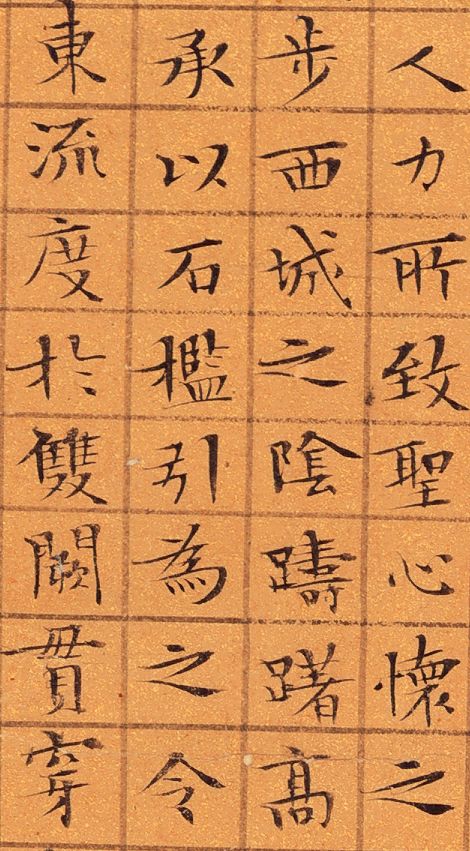 人力所致聖心懷之
步西城之陰躊躇高
承以石檻引為之令
東流度於雙闕貫穿